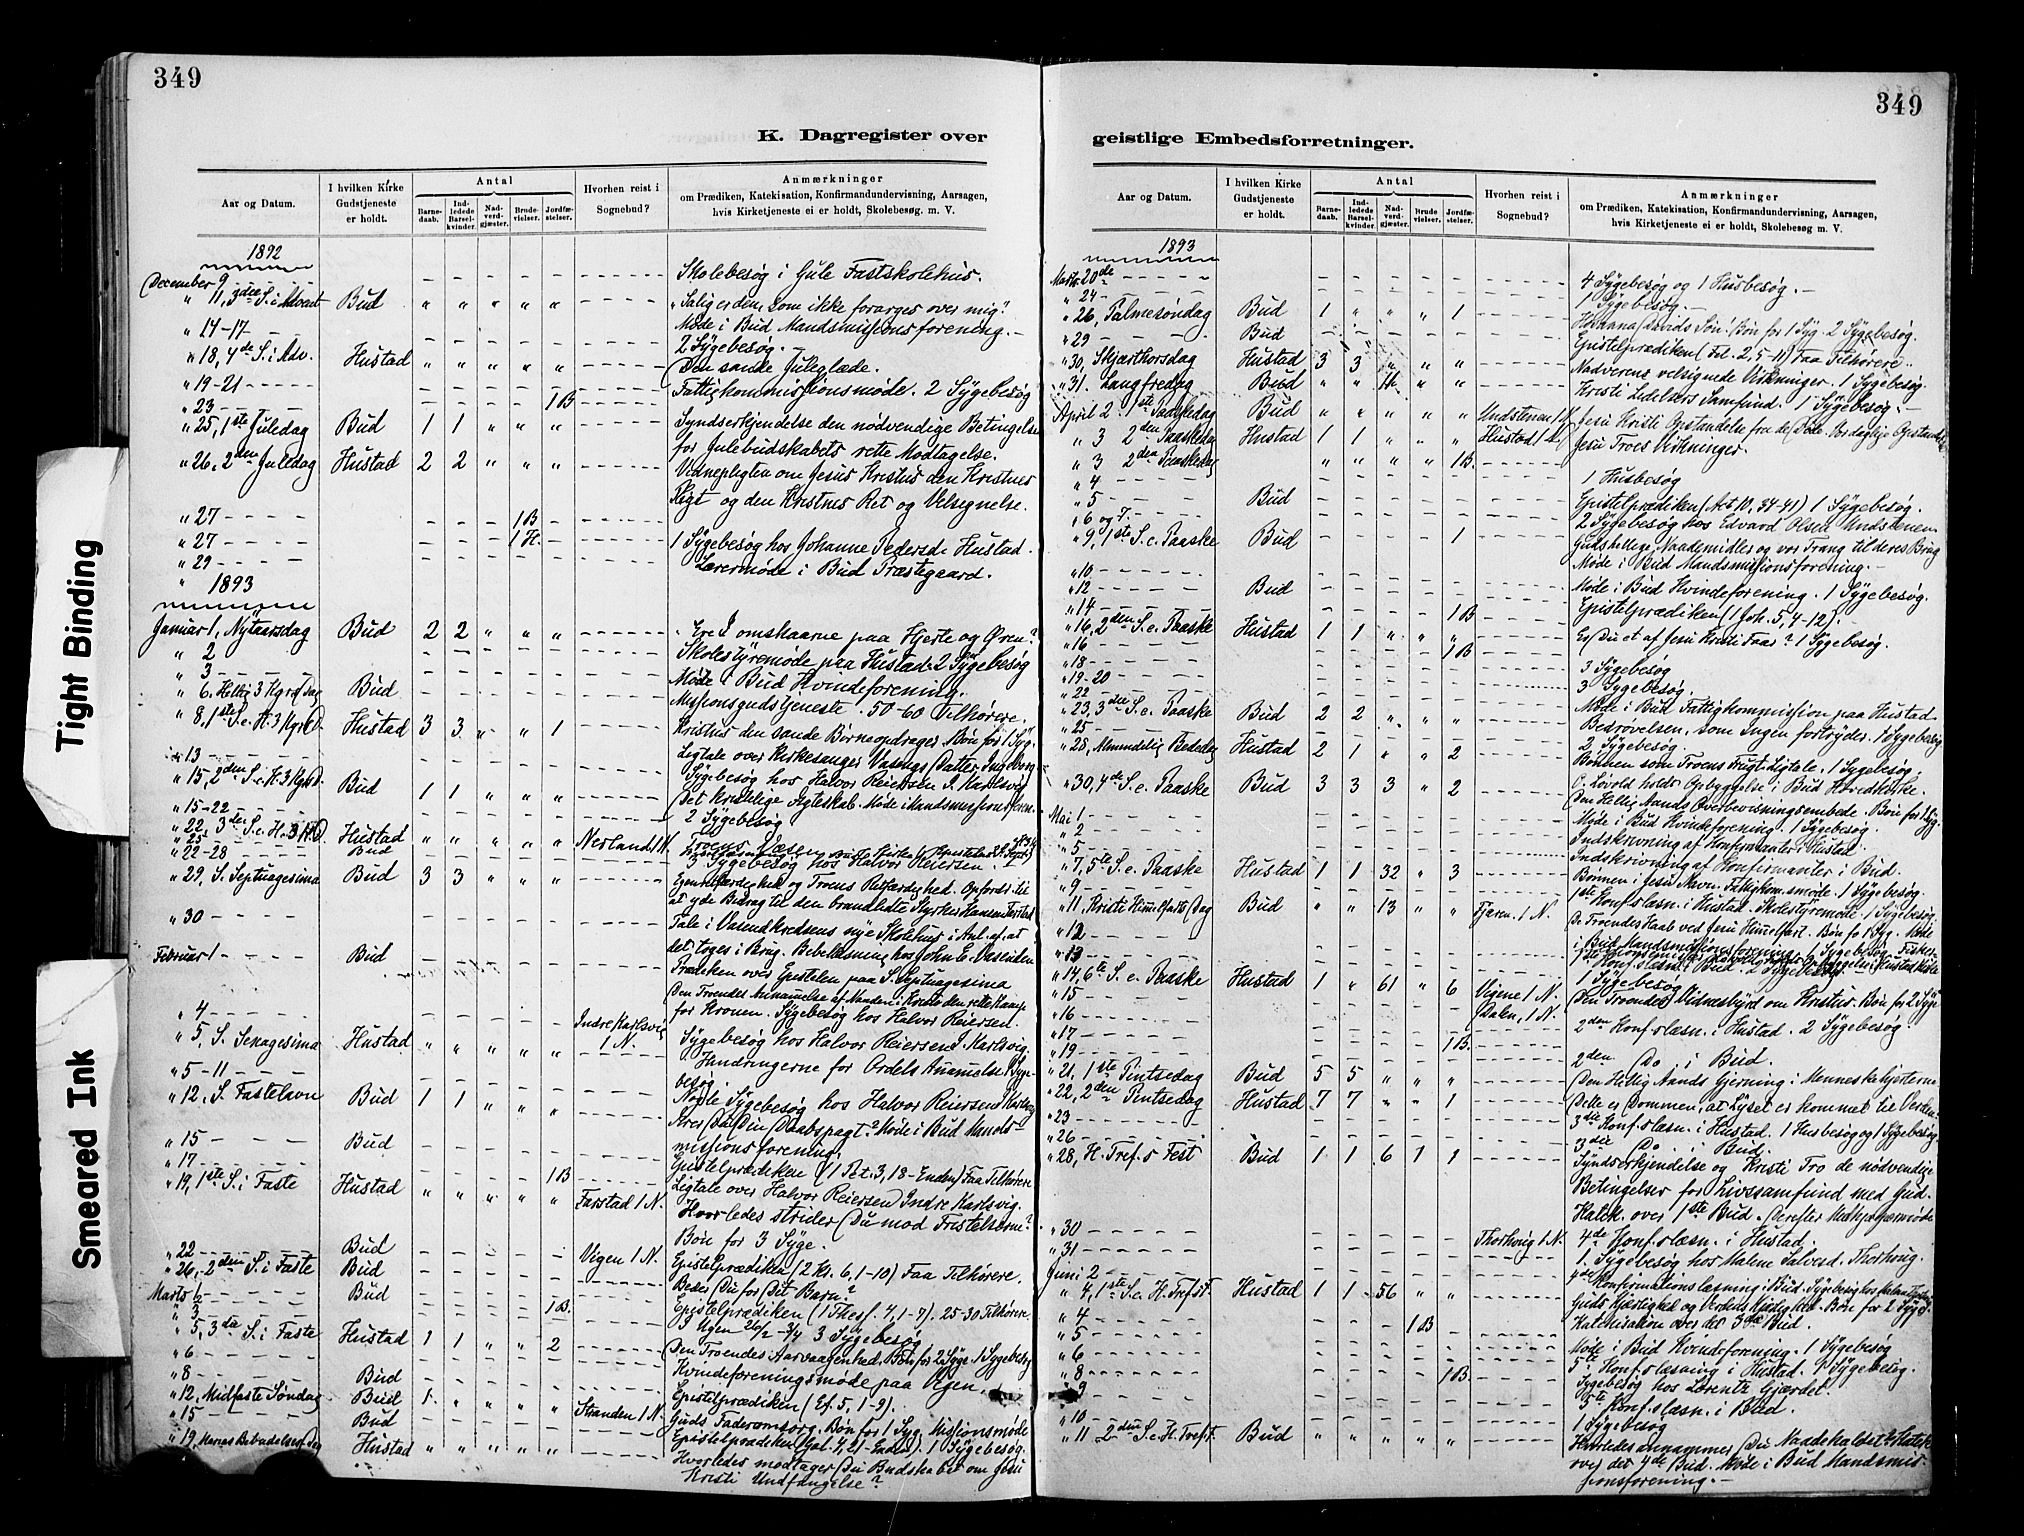 349
K. Dagregister over
Aar og Datum.
I hvilken Kirke Gudstjeneste er holdt.
Antal
Barnedaab.
Indledede Barselkvinder.
Nadverdgjæster.
Brudevielser.
Jordfæstelser.
Hvorhen reist i Sognebud?
Anmærkninger
om Prædiken, Katekisation, Konfirmandundervisning, Aarsagen,
hvis Kirketjeneste ei er holdt, Skolebesøg. m. V.
1892
December 9 - - - - - - Skolebesøg i Gule Fastskolehus.
" 11, 3die S. i Advent Bud " " " " " - "Salig er den, som ikke forarges over mig".
Møde i Bud Mandsmissionsforening.
" 14-17 - - - - - - 2 Sygebesøg.
" 18, 4de S. i Adv. Hustad " " " " " - Den sande Juleglæde.
" 19-21 - - - - - - Fattigkommissionsmøde. 2 Sygebesøg
" 23 - - - - 1 B -
" 25, 1ste Juledag Bud 1 1 " " " - Syndserkjendelse den nødvendige Betingelse
for Julebudskabets rette Modtagelse.
" 26, 2den Juledag Hustad 2 2 " " " - Vidnepligten om Jesus Kristus den Kristnes
Pligt og den Kristnes Ret og Velsignelse.
" 27 - - - 1 B - -
" 27 - - - 1 H. - - 1 Sygebesøg hos Johanne Pedersd. Hustad.
" 29 - - - - - - Lærermøde i Bud Præstegaard.
" 1893
Januar 1, Nytaarsdag Bud 2 2 " " " - Ere I omskaarne paa Hjerte og Øren?
" 2 - - - - - - Skolestyremøde paa Hustad. 2 Sygebesøg
" 3 - - - - - - Møde i Bud Kvindeforening.
" 6. Hellig 3 Kgrs Dag Bud - - - - - - Missionsgudstjeneste. 50-60 Tilhørere.
" 8, 1ste S. e. H. 3 Kgrs D. Hustad 3 3 " " 1 - Kristus den sande Børneopdrager. Bøn for 1 Syg.
" 13 - - - - - - Ligtale over Kirkesanger Datter Ingeborg
" 15, 2den S. e. H. 3 Kgrs D. Bud 1 1 " " " - Sygebesøg hos Halvor Reiersen I. Karlsvig
Det kristelige Ægteskab. Møde i Mandsmissionsforen.
" 15-22 - - - - - - 2 Sygebesøg
" 22, 3die S. e. H. 3 K. D. Hustad " " " " " Nerland 1 N. Troens Væsen
" 25 Bud
" 22-28 - - - - - - 3 Sygebesøg hos Halvor Reiersen
" 29, S. Septuagesima Bud 3 3 " " " - Egenretfærdighed og Troens Retfærdighed. Opfordr. til
at yde Bidrag til den brandlidte Farstad
" 30 - - - - - - Tale i nye Skolehus i Anl. af, at
det toges i Brug. Bibellæsning hos John E.
Februar 1 Bud - - - - - - Prædiken over Epistelen paa S. Septuagesima
Den Troendes Annammelse af Naaden: Kristi den rette Kamp
" 4 - - - - - - for Kronen. Sygebesøg hos Halvor Reiersen.
" 5, S. Sexagesima Hustad " " " " " Indre Karlsvig 1 N. Sygebesøg hos Halvor Reiersen I. Karlsvig
" 5-11 - - - - - - Hindringerne for Ordets Annamelse. Sygebesøg.
" 12, S. Fastelavn Bud 1 1 " " " - Sygebesøg hos Halvor Reiersen I. Karlsvig
Ærer Du Din Daabspagt? Møde i Bud Mandsmissionsforening.
" 15 Bud - - - - - - Epistelprædiken (1 Pet. 3, 18-Enden) Faa Tilhørere
" 17 - - - - 1 B - Ligtale over Halvor Reiersen Indre Karlsvig.
" 19, 1ste S. i Faste Hustad " " " " " Farstad 1 N. Hvorledes strider Du mod Fristelserne?
Bøn for 3 Syge.
" 22 Bud - - - - - Vigen 1 N. Epistelprædiken (2 Kr. 6, 1-10) Faa Tilhørere.
" 26, 2den S. i Faste Bud - - - - - - Beder Du for Dit Barn?
Marts 1 Bud - - - - - - Epistelprædiken (1 Thess. 4, 1-7). 25-30 Tilhørere
" 3 - - - - 1 B. - I Ugen 26/2 - 3/4 3 Sygebesøg
" 5, 3die S. i Faste Hustad 1 1 " " 2 - Den Troendes Aarvaagenhed. Bøn for 2 Syge. 1 Sygebesøg
" 6 - - - - - - Kvindeforeningsmøde paa Vigen.
" 8 Bud - - - - - - Epistelprædiken (Ef. 5, 1-9).
" 12, Midfaste Søndag Bud 1 " " " " Stranden 1 N. Guds Faderomsorg. Bøn for 1 Syg. Missionsmøde
" 15 Bud - - - - - - Epistelprædiken (Gal. 4, 21-Enden). 1 Sygebesøg.
" 19, Marias Bebudelses Dag Hustad " " " " " - Hvorledes modtager Du Budskabet om Jesu
Kristi Undfangelse?
349
geistlige Embedsforretninger.
Aar og Datum.
I hvilken Kirke Gudstjeneste er holdt.
Antal
Barnedaab.
Indledede Barselkvinder.
Nadverdgjæster.
Brudevielser.
Jordfæstelser.
Hvorhen reist i Sognebud?
Anmærkninger
om Prædiken, Katekisation, Konfirmandundervisning, Aarsagen,
hvis Kirketjeneste ei er holdt, Skolebesøg m. V.
1893
Marts 20de - - - - - - 4 Sygebesøg og 1 Husbesøg.
" 24 - - - - - - 1 Sygebesøg.
" 26, Palmesøndag Bud 1 " " " 1 - Hosanna Davids Søn! Bøn for 1 Syg. 2 Sygebesøg.
" 29 Bud - - - - - - Epistelprædiken (Fil. 2, 5-11) Faa Tilhørere.
" 30, Skjærthorsdag Hustad 3 3 " " " - Nadverens velsignede Virkninger. 1 Sygebesøg.
" 31. Langfredag Bud " " " " - Kristi Lidelsers Samfund. 1 Sygebesøg.
April 2 1ste Paaskedag Bud " " " " " 1 N. Jesu Kristi Opstandelse fra de Døde. Vor daglige Opstandelse
" 3 2den Paaskedag Hustad 1 1 " " " Hustad 1 Jesu Troes Virkninger.
" 3 2den Paaskedag " " " " 1 B. -
" 4 - - - - - - 1 Husbesøg
" 5 Bud - - - - - - Epistelprædiken (Act 10, 34-41) 1 Sygebesøg.
" 6 og 7 - - - - - - 2 Sygebesøg hos Edvard Olsen
" 9, 1ste S. e. Paaske Bud 1 - Guds hellige Naademidler og vor Trang til deres Brug
" 10 - - - - - - Møde i Bud Mandsmissionsforening.
" 12 Bud - - - - - - Møde i Bud Kvindeforening. 1 Sygebesøg.
" 14 - - - - 1 B - Epistelprædiken (1 Joh. 5, 4-12).
" 16, 2den S. e. Paaske Hustad 1 1 " " " - Er Du et af Jesu Kristi Faar? 1 Sygebesøg.
" 16 - - - - 1 B -
" 18 - - - - - - 3 Sygebesøg
" 19-20 - - - - - - 3 Sygebesøg.
" 22 - - - - - - Møde i Bud Fattigkommission paa Hustad
" 23, 3die S. e. Paaske Bud 2 2 " " " - Bedrøvelsen, som Ingen fortryder. 1 Sygebesøg
" 25 - - - - - - 2 Sygebesøg.
" 28, Almindelig Bededag Hustad 2 1 " " 2 - Bønnen som Troens Frugt. Ligtale. 1 Sygebesøg.
E. Løvold holdt Opbyggelse i Bud Hovedkirke.
" 30, 4de S. e. Paaske Bud 3 3 3 " 2 - Den Hellig Aands Overbevisningsembede. Bøn for 1 Syg.
Mai 1 - - - - - - Møde i Bud Kvindeforening. 1 Sygebesøg.
" 2 - - - - - - Indskrivning af Konfirmanter i Hustad
" 5 - - - - - - Indskrivning af Konfirmanter i Bud.
" 7, 5te S. e. Paaske Hustad 1 1 32 " 3 - Bønnen i Jesu Navn. Fattigkom.smøde. 1 Sygebesøg
" 9 - - - - - - 1ste Konf.slæsn. i Hustad. Skolestyremøde. 1 Sygebesøg.
" 11, Kristi Himmelfarts Dag Bud " " 13 " " 1 N. De Troendes Haab ved Jesu Himmelfart. Bøn fo 1 Syg. Møde
" 12 - - - - - - i Bud Mandsmissionsforening. 1 Sygebesøg.
" 13 - - - - - - 1ste Konf.slæsn. i Bud. 2 Sygebesøg
" 14, 6te S. e. Paaske Hustad 1 " 61 " 6 Vigene 1 N. 1 Sygebesøg
" 15 - - - - - - Den Troendes Vidnesbyrd om Kristus. Bøn for 2 Syge
" 16 - - - - - Dalen, 1 N. 2den Konf.slæsn. i Hustad. 2 Sygebesøg.
" 17 - - - - - -
" 19 - - - - 1 B. - 2den Do i Bud.
" 21, 1ste Pintsedag Bud 5 5 " " " - Den Hellig Aands Gjerning i Menneskehjerterne
" 22, 2den Pintsedag Hustad 7 7 " " 1 - Dette er Dommen, at Lyset er kommet til Verden
" 23 - - - - - - 3die Konf.slæsn. i Hustad. 1 Husbesøg og 1 Sygebesøg
" 26 - - - - - - 3die Do. i Bud.
" 28, H. Tref.s Fest Bud 1 1 6 1 1 - Syndserkjendelse og Kristi Tro de nødvendige
Betingelser for Livssamfund med Gud.
Katek. over 1ste Bud. Derefter
" 30 - - - - - - 4de Konf.slæsn. i Hustad.
" 31 - - - - - Thorhvig 1 N. 1 Sygebesøg hos Malene Thorhvig.
Juni 2 - - - - - - 4de Konfirmationslæsning i Bud.
" 4, 1ste S. e. H. Tref.st. Hustad 1 1 56 " " - Guds Kjærlighed og Verdens Kjærlighed. Bøn for 2 Syge.
" 4 - - - 1 B - - Katekisation over det 3die Bud.
" 5 - - - - - - Møde i Bud Kvindeforening. 1 Sygebesøg
" 6 - - - - - - 5te Konf.slæsning i Hustad. Sygebesøg.
" 8 - - - - 1 B. - Sygebesøg hos Lorentz Gjærdet.
" 9 - - - - - - 5te Konf.slæsn. i Bud.
" 10 - - - - - - 1 Sygebesøg
" 11 2den S. e. H. Tref.st. Bud " " " " " - Hvorledes annammer Du Naadekaldet? Katek.
over det 4de Bud. Møde i Bud Mandsmissionsforening.
Tight Binding
Smeared Ink